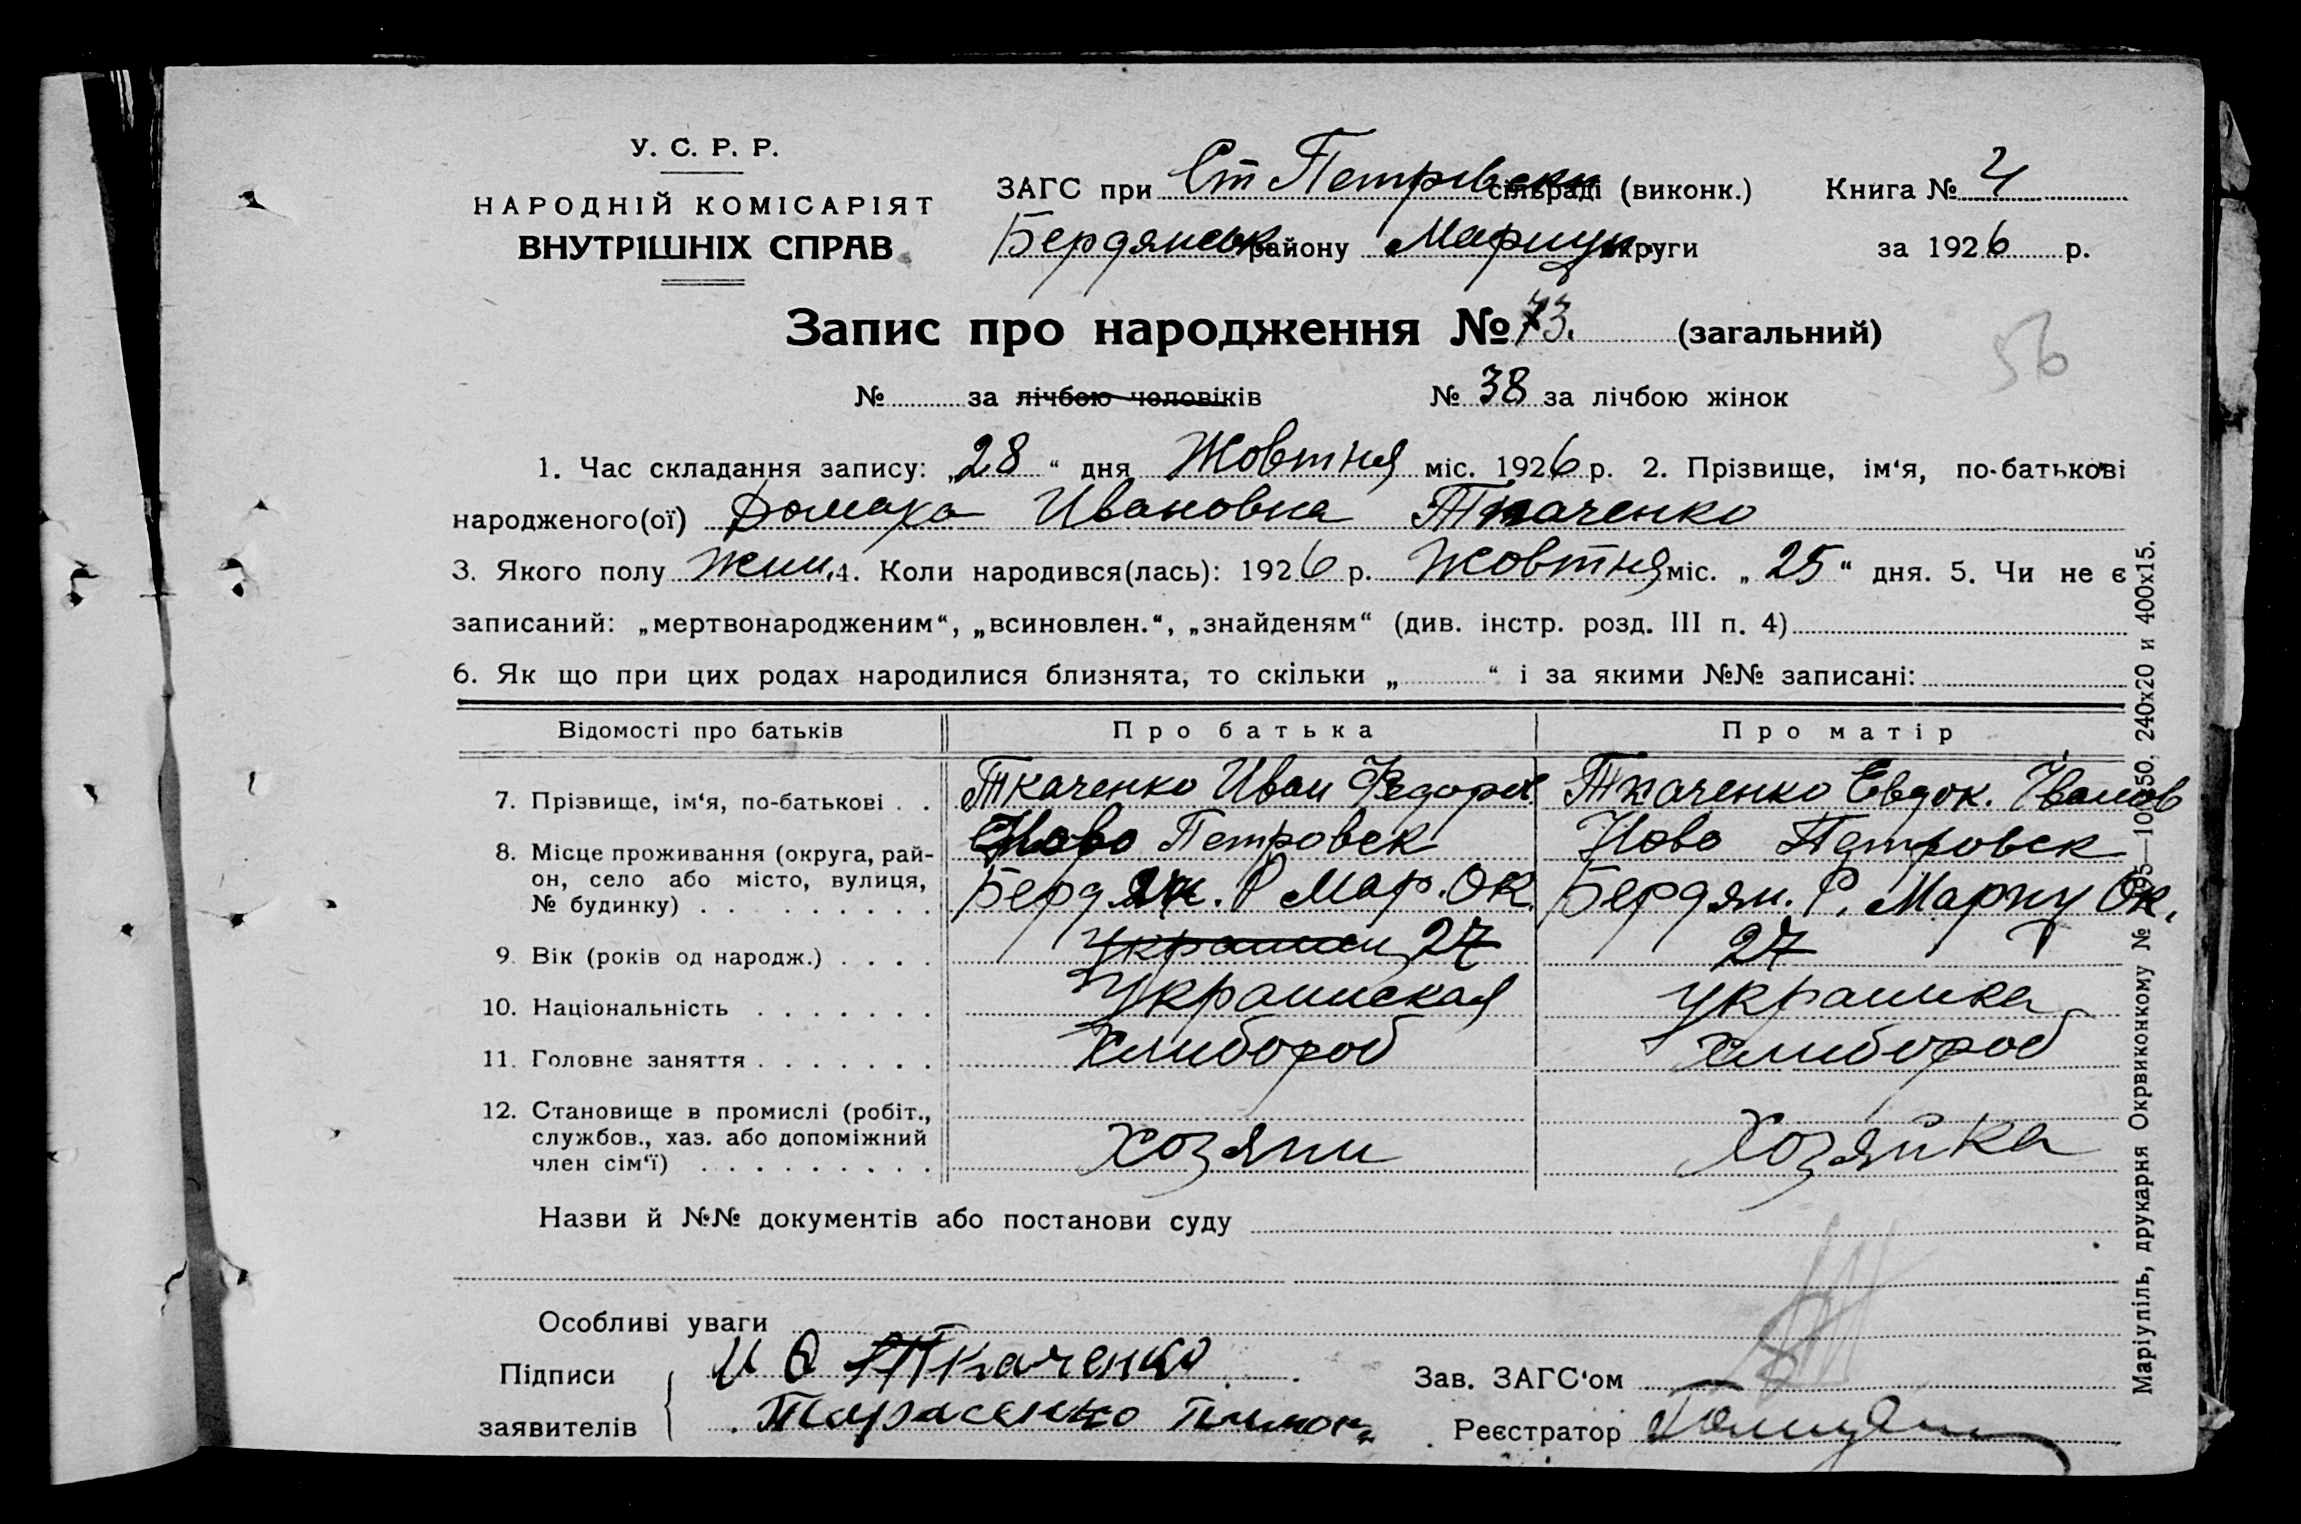 У. С. Р. Р.
НАРОДНІЙ КОМІСАРІЯТ
ВНУТРІШНІХ СПРАВ
ЗАГС при Ст Петровски сільраді (виконк.) Книга № 4
Бердянськ району Мариуп. округи за 1926 р.
Запис про народження № 73. (загальний)
56
№ за лічбою чоловіків № 38 за лічбою жінок
1. Час складання запису: „28“ дня Жовтня міс. 1926 р. 2. Прізвище, ім‘я, по-батькові
народженого(ої) Домаха Ивановна Ткаченко
3. Якого полу жин. 4. Коли народився(лась): 1926 р. Жовтня міс. „25“ дня. 5. Чи не є
записаний: „мертвонародженим“, „всиновлен.“, „знайденям“ (див. інстр. розд. III п. 4)
6. Як що при цих родах народилися близнята, то скільки „ “ і за якими №№ записані:
Відомості про батьків Про батька Про матір
7. Прізвище, ім‘я, по-батькові . . Ткаченко Иван Федоров Ткаченко Евдок. Іванов
8. Місце проживання (округа, рай- Ново Петровск Ново Петровск
он, село або місто, вулиця,
№ будинку) . . . . . . . . Бердян. Р Мар. Ок. Бердян. Р. Мариу Ок.
9. Вік (років од народж.) . . . . украинец 27 27
10. Національність . . . . . . . Украинская украинка
11. Головне заняття . . . . . . . Хлибороб хлибороб
12. Становище в промислі (робіт.,
службов., хаз. або допоміжний
член сім‘ї) . . . . . . . . . хозяин хозяйка
Назви й №№ документів або постанови суду
Особливі уваги
Підписи И Ф Ткаченко Зав. ЗАГС‘ом
заявителів Тарасенко Тимох Реєстратор
Маріупіль, друкарня Окрвиконкому № 95—10050, 240x20 и 400x15.